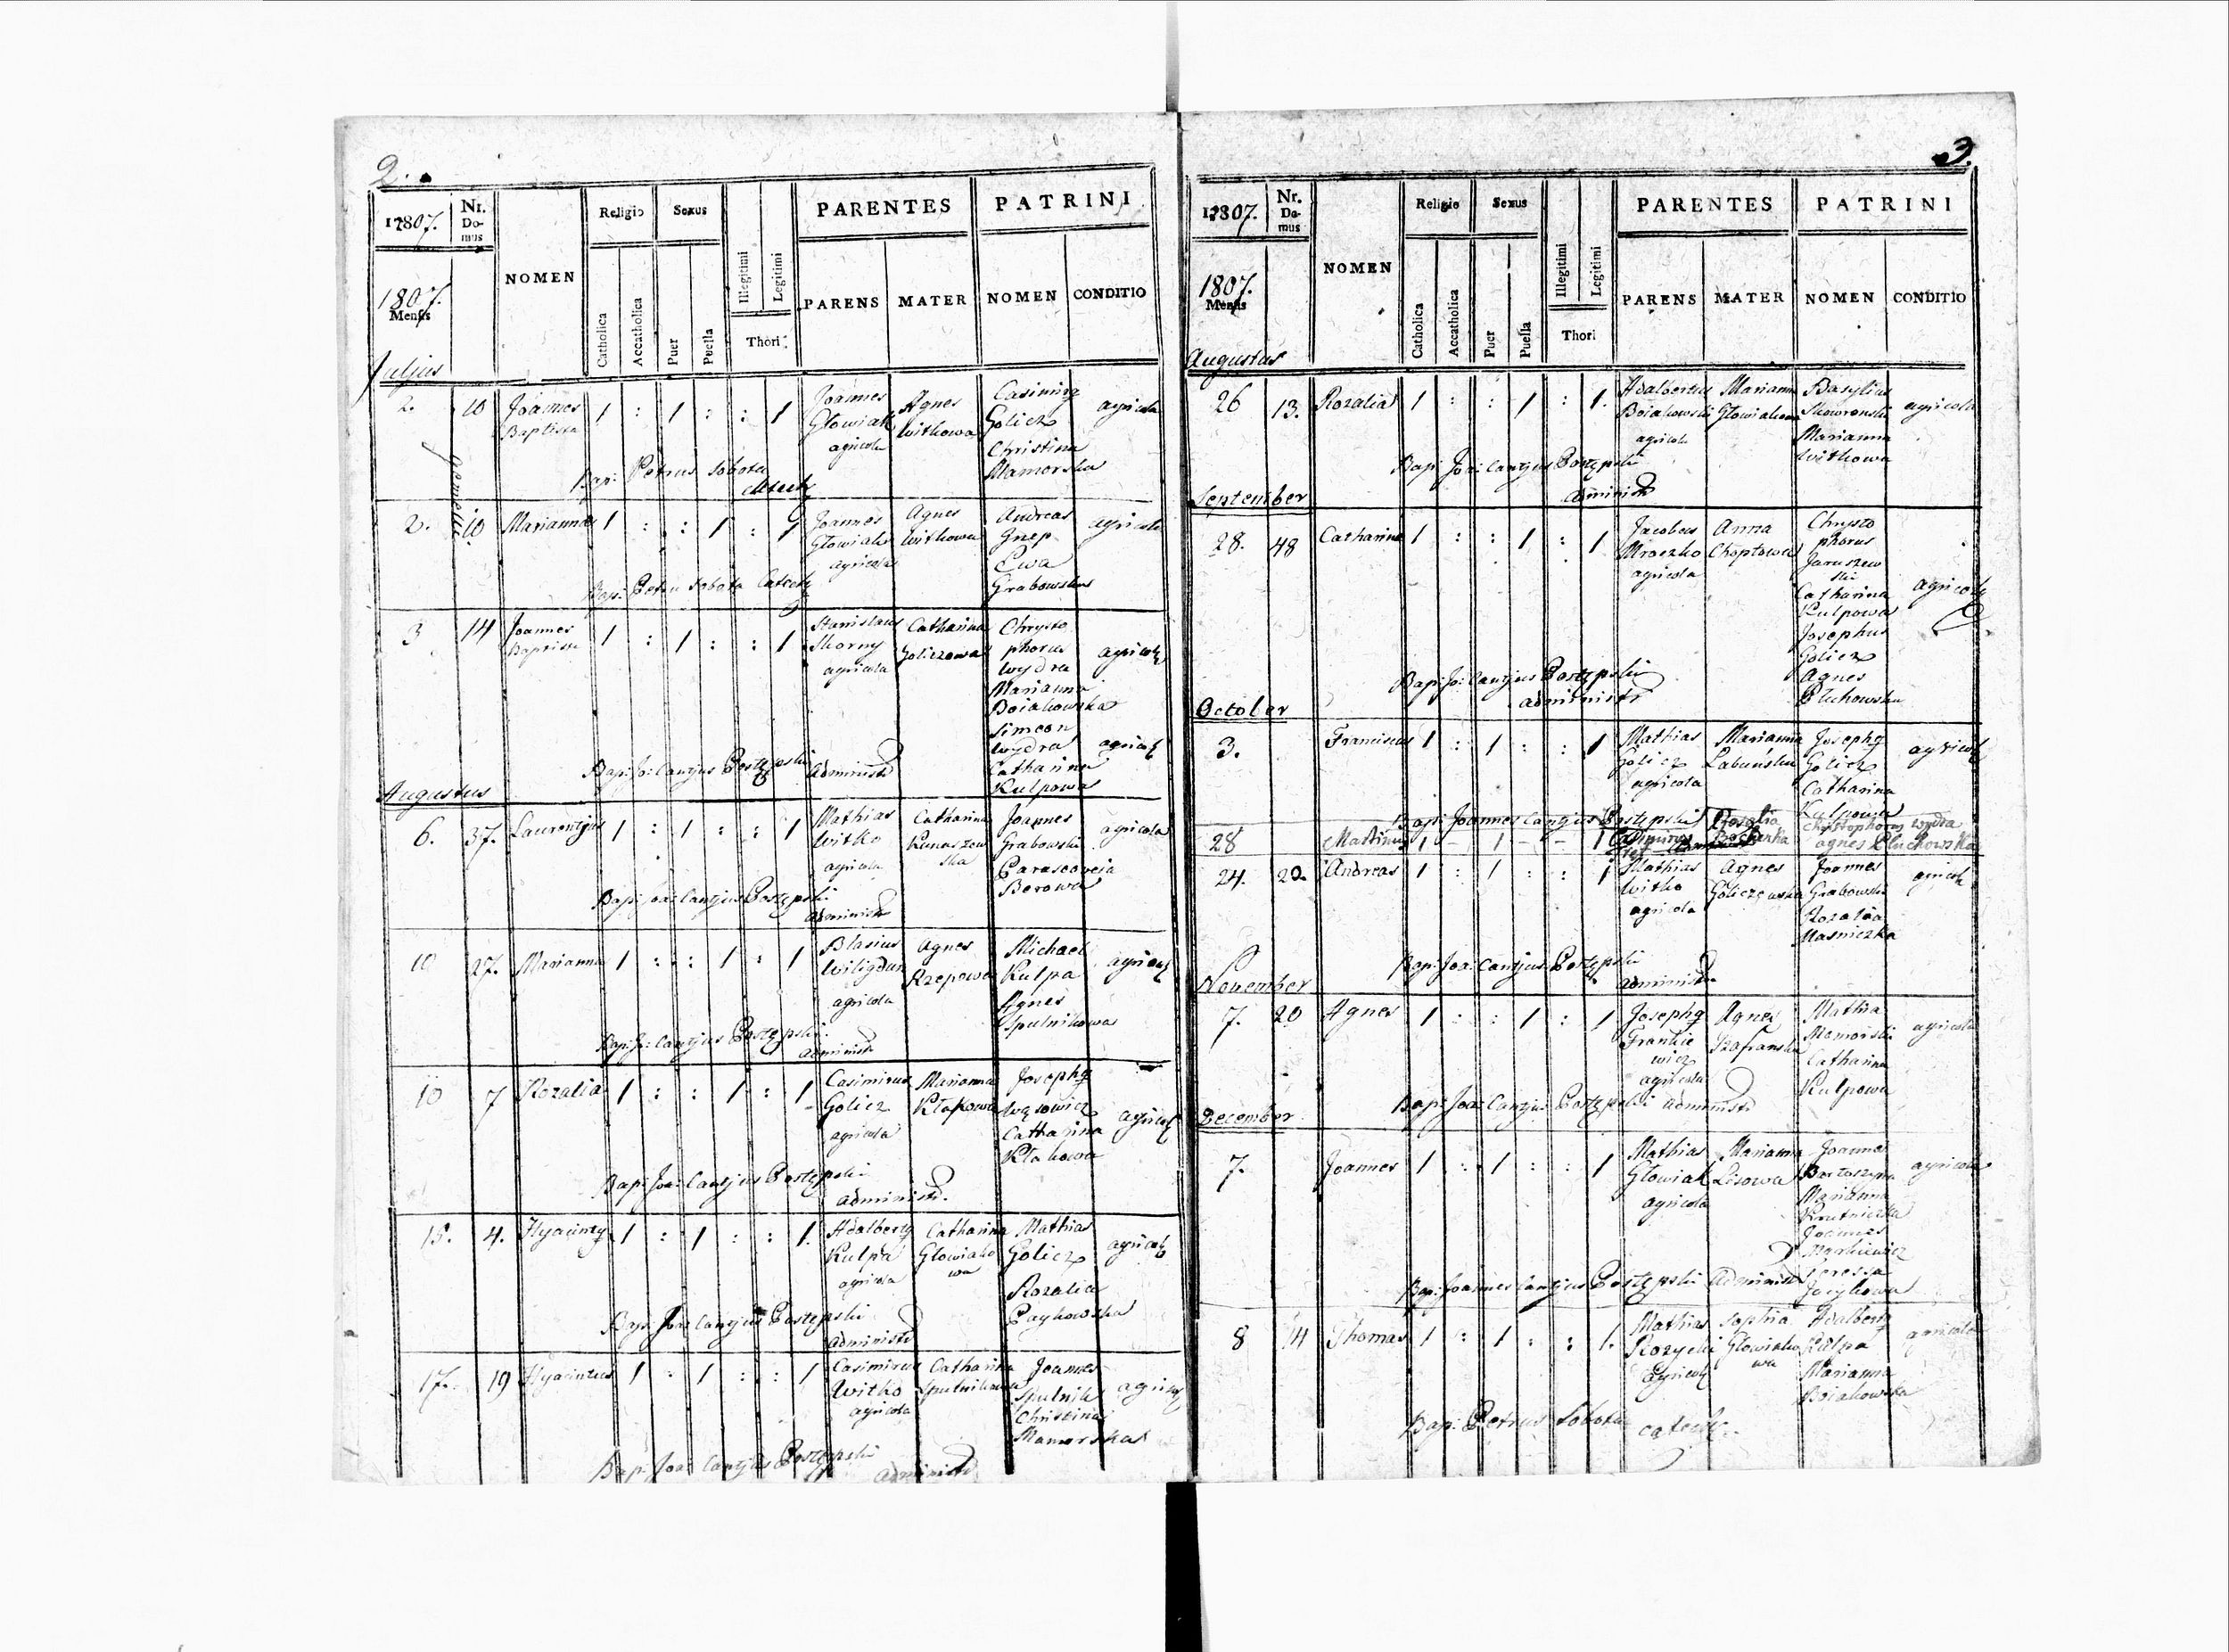 2.
17807. Nr. Domus NOMEN Religio Sexus PARENTES PATRINI
1807. Mensis Catholica Accatholica Puer Puella Illegitimi Legitimi Thori PARENS MATER NOMEN CONDITIO
Julius
2. 10 Joannes 1 : 1 : : 1 Joannes Agnes Casimirg agricola
Baptista Głowiak Witkowa Golicz
agricola Christina
Bap: Petrus Sobota Mamorska
gemelli
2. 10 Marianna 1 : : 1 : 1 Joannes Agnes Andreas agricola
Głowiak Witkowa Gnep
agricola Ewa
Bap: Petru Sobota Catech Grabowska
3 14 Joannes 1 : 1 : : 1 Stanislaus Catharina Chrysto
Baptista Skorny Goliczowa phorus agricolę
agricola Wydra
Marianna
Boiakowska
Simeon
Wydra agricolę
Bap: Jo: Cantjus Postępski Administr Catharina
Kulpowa
Augustus
6. 37. Laurentjus 1 : 1 : : 1 Mathias Catharina Joannes agricola
Witko Kunaszew Grabowski
agricola ska Parascoveia
Bap: Joa: Cantjus Postępski Berowa
Administr
10 27. Marianna 1 : : 1 : 1 Blasius Agnes Michael
Wiligdur Rzepowa Kulpa agricolę
agricola Agnes
Bap: Jo: Cantjus Postępski Spulnikowa
Administr
10 7 Rozalia 1 : : 1 : 1 Casimirus Marianna Josephg
Golicz Kłakowa Wąsowicz agricolę
agricola Catharina
Kłakowa
Bap: Joa: Cantjus Postępski
Administr.
15. 4. Hyacintg 1 : 1 : : 1. Adalbertg Catharina Mathias
Kulpa Głowiako Golicz agricolę
agricola wa Rozalia
Bap: Joa: Cantjus Postępski Paykowska
Administr
17. 19 Hyacintus 1 : 1 : : 1 Casimirus Catharina Joannes
Witko Spulnikowa Spulnik agricolę
agricola Christina
Mamorska
Bap: Joa: Cantjus Postępski Administr
3.
17807. Nr. Domus NOMEN Religio Sexus PARENTES PATRINI
1807. Mensis Catholica Accatholica Puer Puella Illegitimi Legitimi Thori PARENS MATER NOMEN CONDITIO
Augustus
26 13. Rozalia 1 : : 1 : 1. Adalbertus Marianna Basylius
Boiakowski Głowiakowa Skowronski agricola
agricola Marianna
Bap: Joa: Cantjus Postępski Witkowa
Administr
September
28. 48 Catharina 1 : : 1 : 1 Jacobus Anna Chrysto
Mroczko Choptowa phorus
agricola Jaruszew
ski
Catharina agricolę
Kulpowa
Josephus
Golicz
Bap: Jo: Cantjus Postępski Agnes
administr Płuchowska
October
3. Franciscus 1 : 1 : : 1 Mathias Marianna Josephg agricolę
Golicz Łabuńska Golicz
agricola Catharina
Bap: Joannes Cantjus Postępski Kulpowa
28 Martinus 1 - 1 - - 1 Casimirus Rosalia Christophorus Wydra
Agnes Pluchowska
24. 20. Andreas 1 : 1 : : 1 Mathias Agnes Joannes agricolę
Witko Goliczowska Grabowski
agricola Rozalia
Masniczka
Bap: Joa: Cantjus Postępski
Administr
November
7. 20 Agnes 1 : : 1 : 1 Josephg Agnes Mathia
Frankie Szafranska Mamorski agricola
wicz Catharina
agricola Kulpowa
Bap: Joa: Cantjus Postępski administr
December
7. Joannes 1 : 1 : : 1 Mathias Marianna Joannes
Głowiak Lisowa Bartoszyna agricola
agricola Marianna
Krutniczka
Joannes
Markiewicz
Bap: Joannes Cantjus Postępski Administr Teressa
8 14 Thomas 1 : 1 : : 1. Mathias Sophia Adalbertg
Rozycki Głowiako Kulpa agricola
agricolę wa Marianna
Boiakowska
Bap: Petrus Sobota catech.